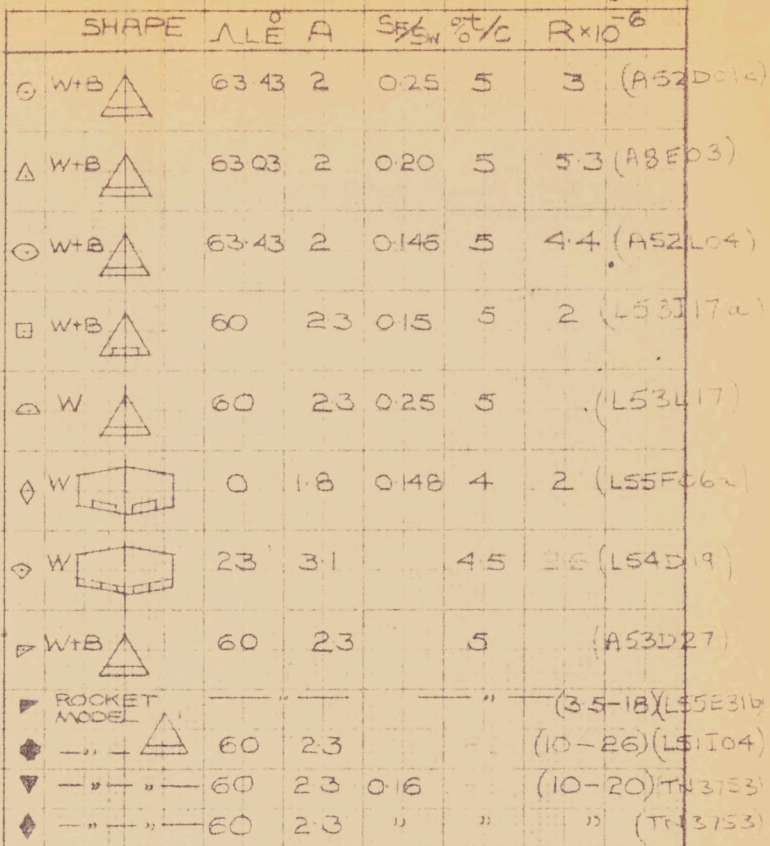 SHAPE ΛLE° A SF/SW % t/c R×10⁻⁶
W+B 63·43 2 0·25 5 3 (A52D01c)
W+B 63 03 2 0·20 5 5·3 (A8E03)
W+B 63·43 2 0·146 5 4·4 (A52L04)
W+B 60 2·3 0·15 5 2 (L53I17a)
W 60 2·3 0·25 5 (L53L17)
W 0 1·8 0·148 4 2 (L55F06a)
W 23 3·1 4·5 (L54D19)
W+B 60 2·3 5 (A53D27)
ROCKET MODEL —"— —"— (3·5-18)(L55E31b)
—"— 60 2·3 (10-26)(L51I04)
—"—"— 60 2·3 0·16 (10-20)(TN3753)
—"—"— 60 2·3 " " " (TN3753)